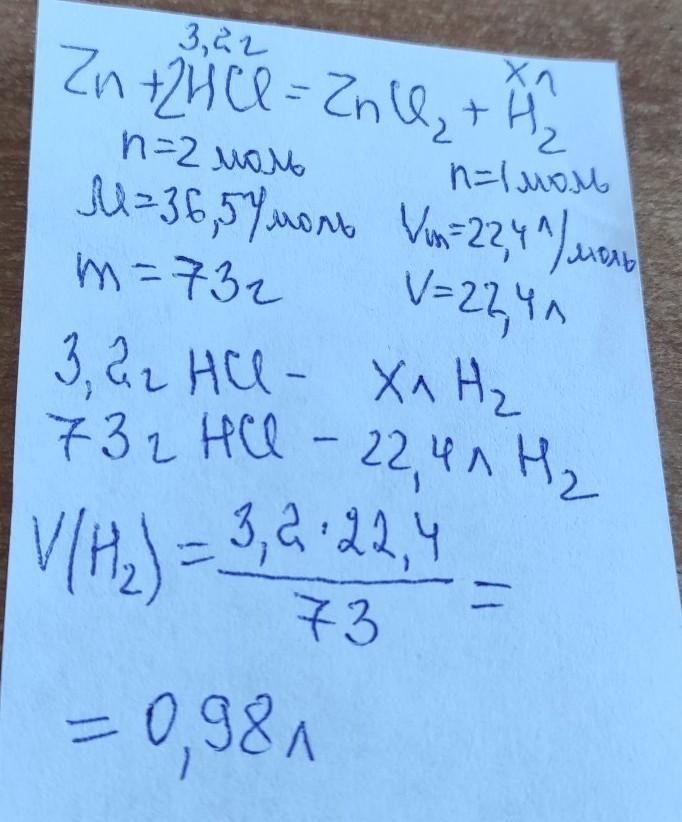 3,2г хл
Zn + 2HCl = ZnCl₂ + H₂
n=2 моль n=1 моль
M=36,5 г/моль Vm=22,4 л/моль
m=73г V=22,4 л
3,2г HCl - х л H₂
73г HCl - 22,4 л H₂
V(H₂) = 3,2·22,4 / 73 =
= 0,98 л